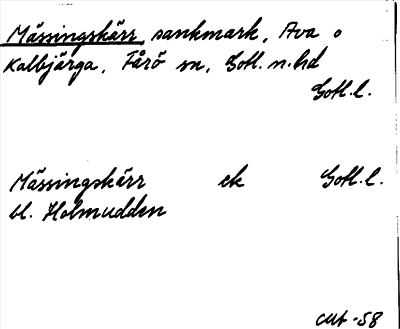 Mässingskärr sankmark, Ava o
Kalbjärga, Fårö sn, Gotl. n. hd
Gotl. l.
Mässingskärr ek Gotl. l.
bl. Holmudden
-58